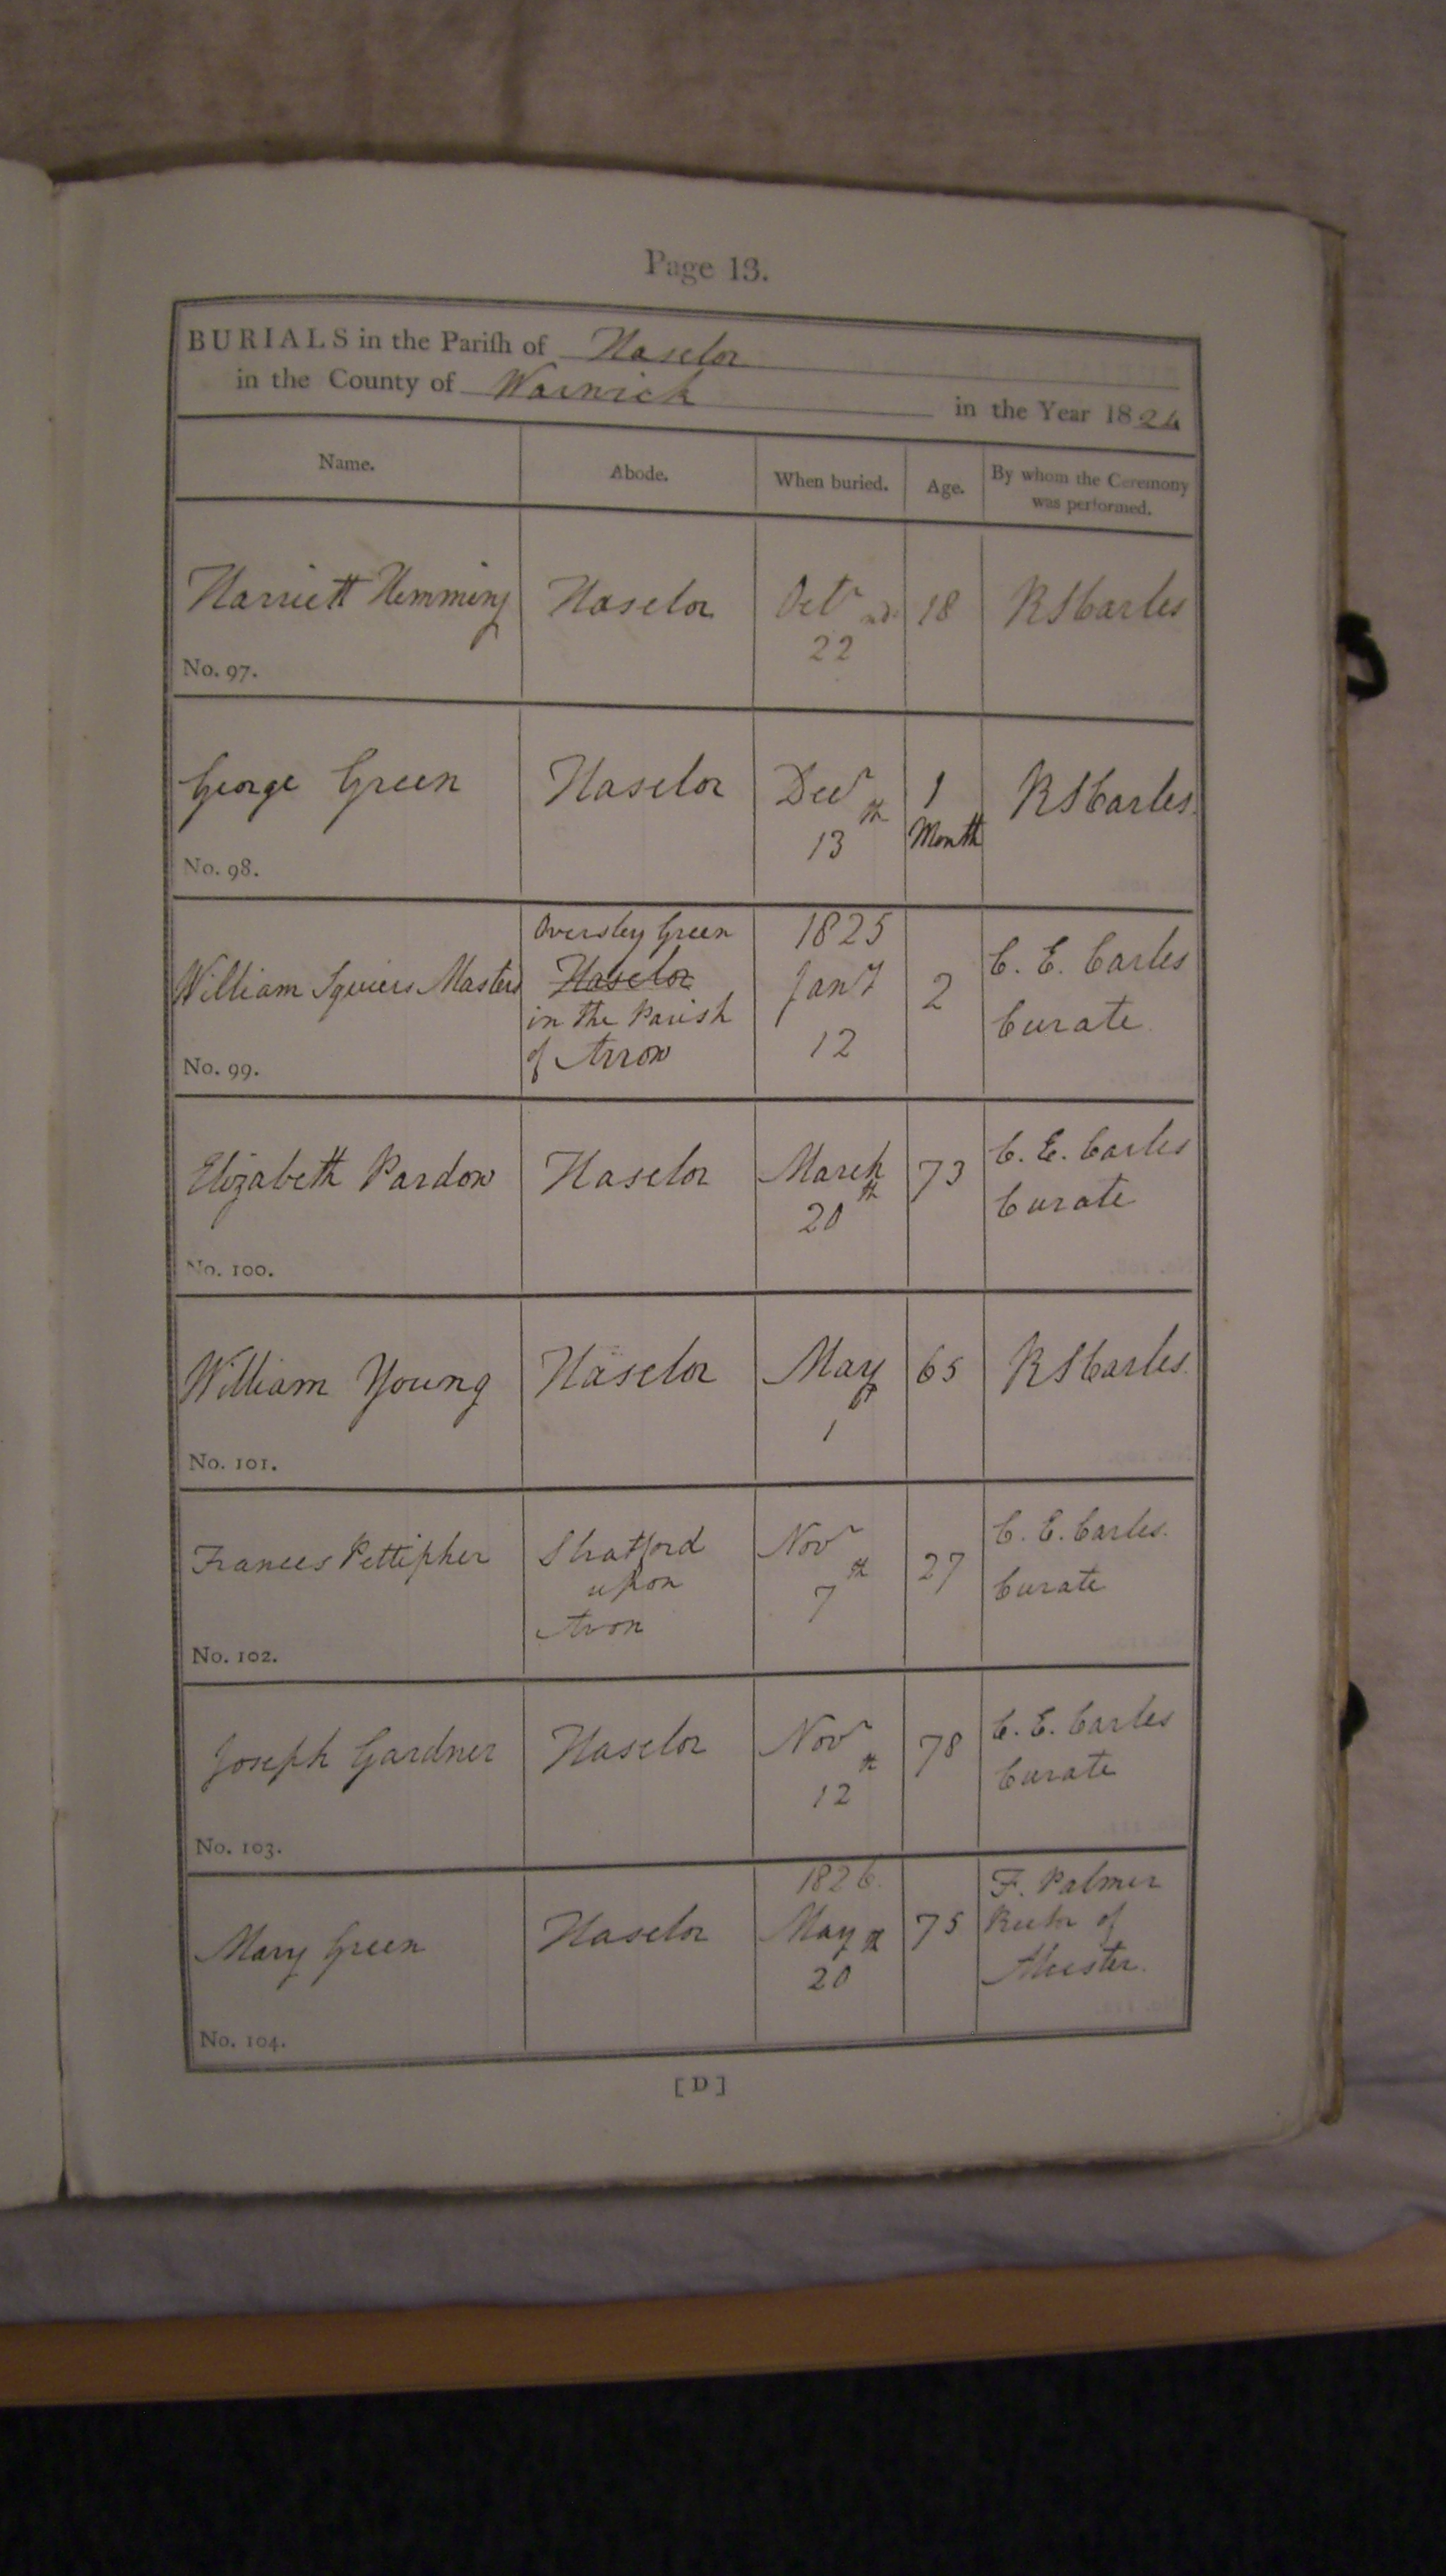 Page 13.
BURIALS in the Pariſh of Haselor
in the County of Warwick in the Year 1824
Name. Abode. When buried. Age. By whom the Ceremony was performed.
Harriett Hemming Haselor Octr 22nd 18 R S Carles
No. 97.
George Green Haselor Decr 13th 1 Month R S Carles.
No. 98.
William Squiers Masters Oversley Green Haselor in the Parish of Arrow 1825 Jany 12 2 C. E. Carles Curate
No. 99.
Elizabeth Pardow Haselor March 20th 73 C. E. Carles Curate
No. 100.
William Young Haselor May 1st 65 R S Carles.
No. 101.
Frances Pettipher Stratford upon Avon Novr 7th 27 C. E. Carles. Curate
No. 102.
Joseph Gardner Haselor Novr 12th 78 C. E. Carles Curate
No. 103.
Mary Green Haselor 1826. May 20th 75 F. Palmer Rector of
No. 104.
[D]